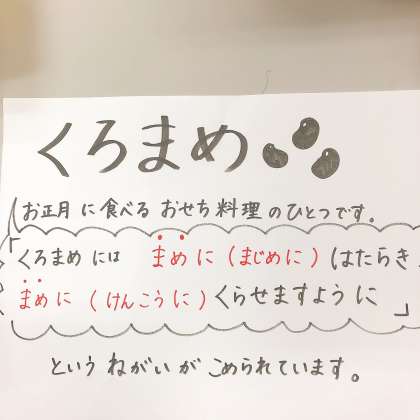 くろまめ
お正月に食べるおせち料理のひとつです。
「くろまめには まめに(まじめに)はたらき、
まめに(けんこうに)くらせますように」
というねがいがこめられています。